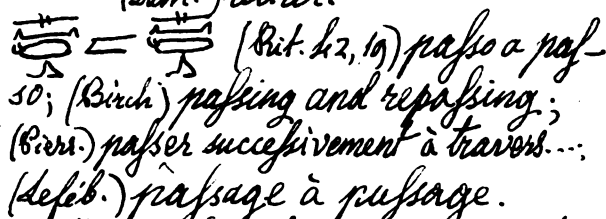 (Rit. 42, 19) passo a pas-
so; (Birch) passing and repassing;
(Pierr.) passer successivement à travers....;
(Leféb.) passage à passage.